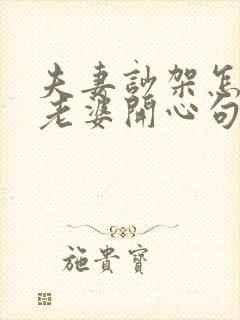 夫妻訟架怎
老婆開心句
施貴寶